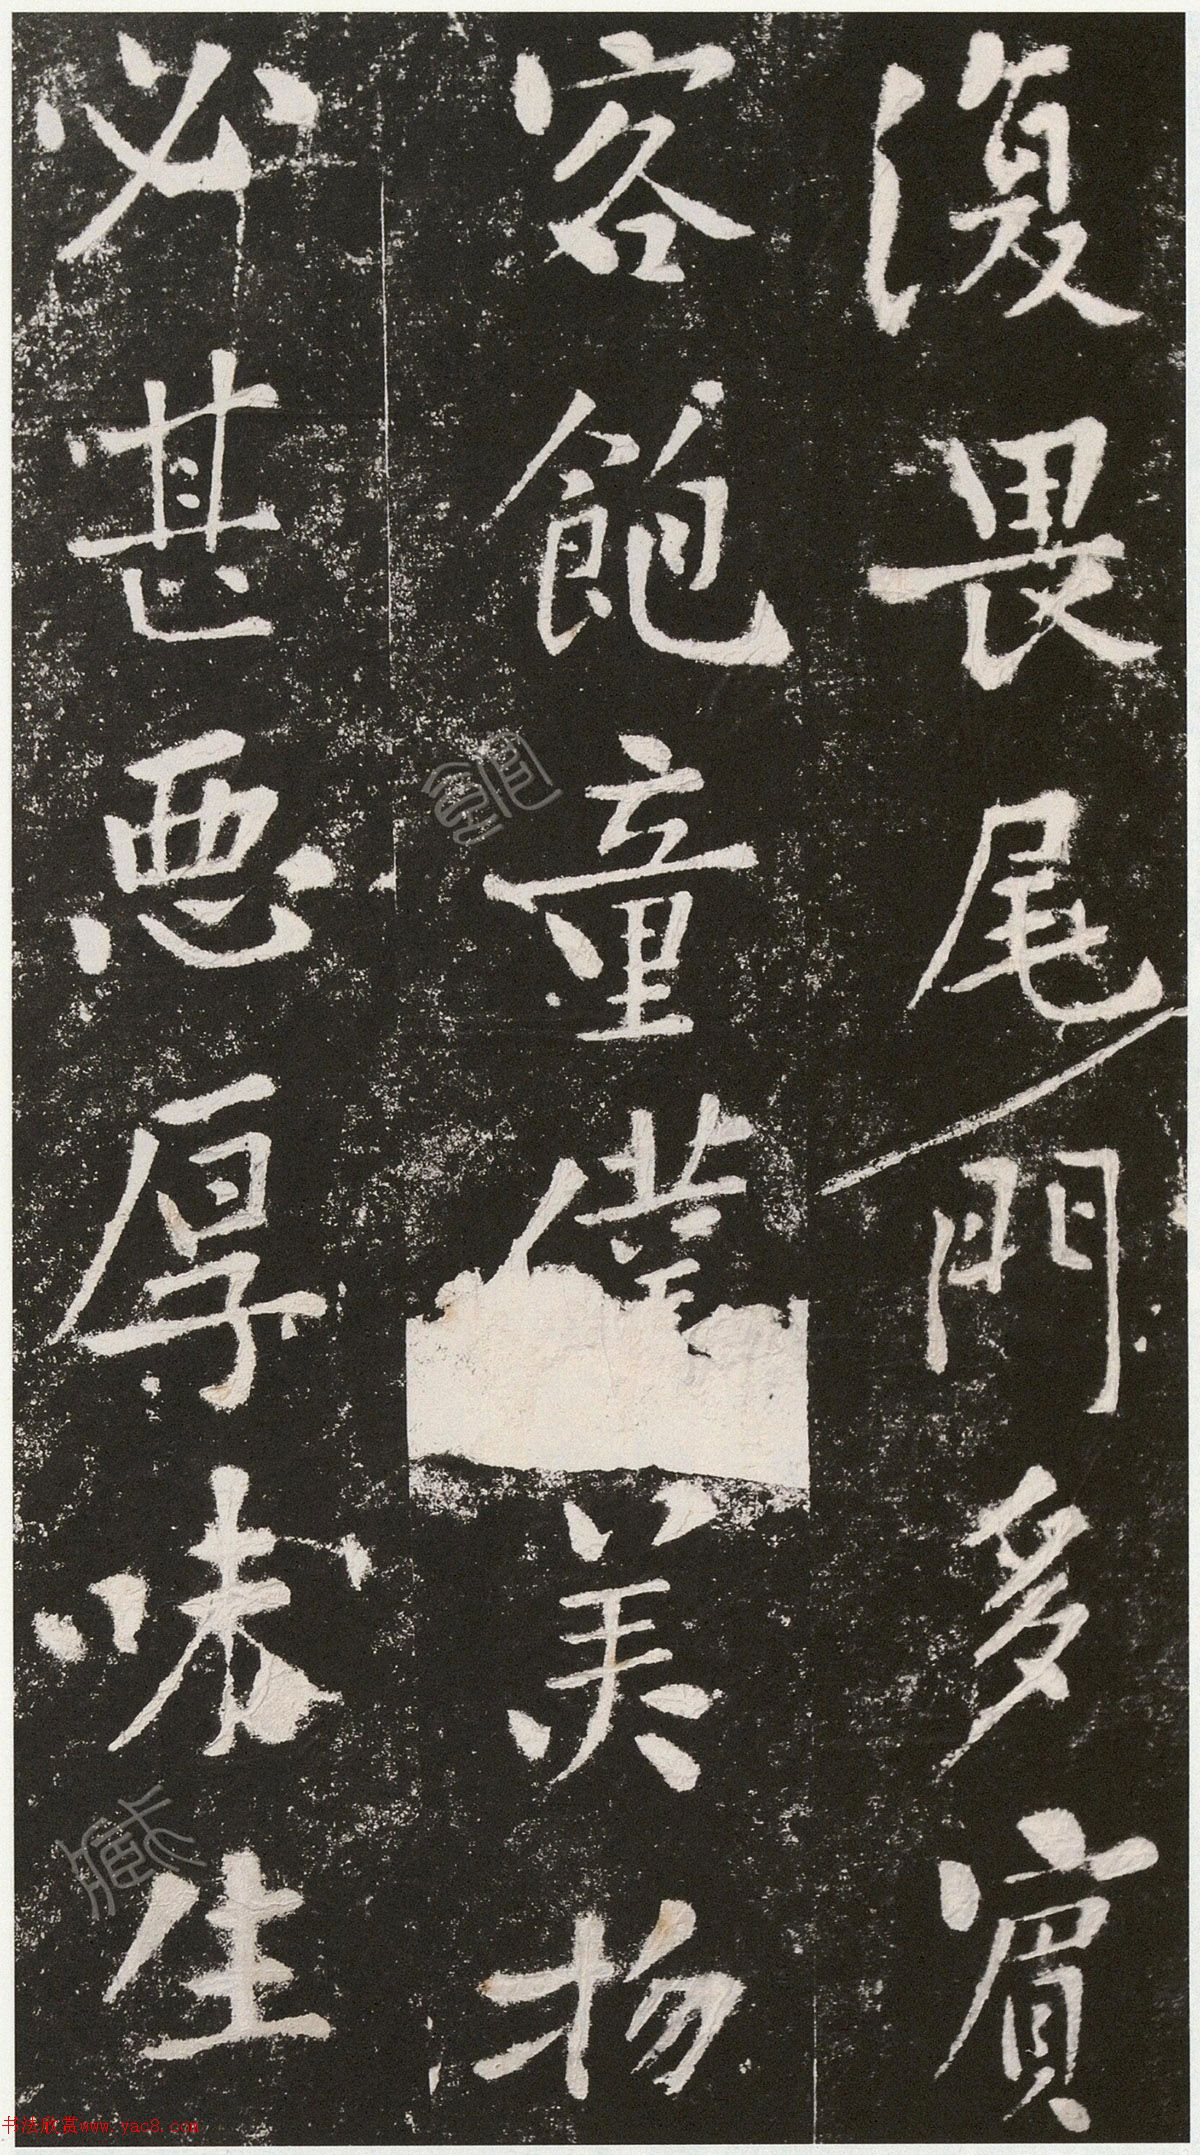 復畏尾門多賓
客飽童僕美物
必甚惡厚味生
书法欣赏www.yac8.com